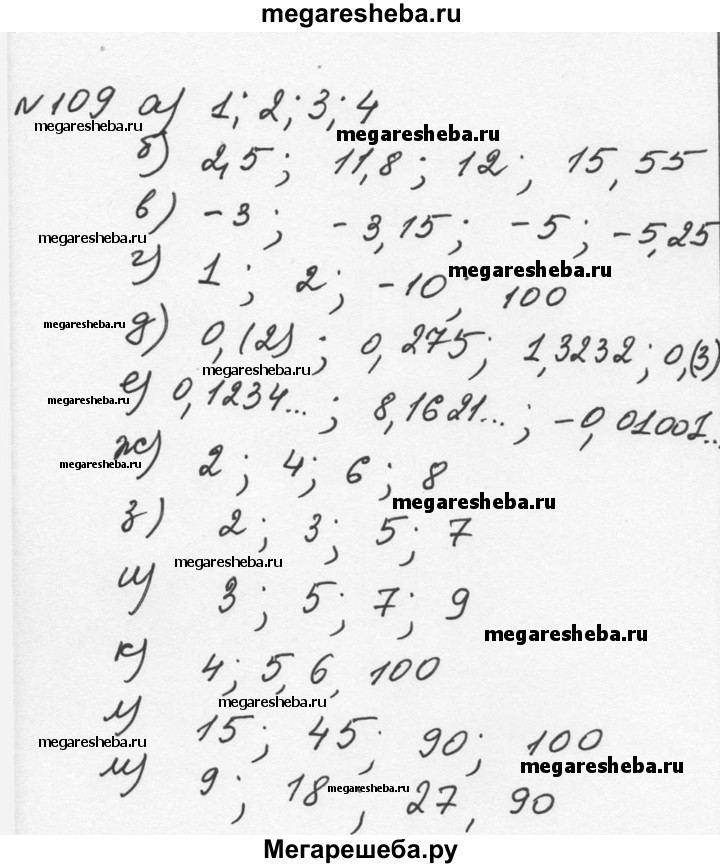 megaresheba.ru
№109 а) 1; 2; 3; 4
megaresheba.ru
megaresheba.ru
б) 2,5; 11,8; 12; 15,55
в) -3; -3,15; -5; -5,25
megaresheba.ru
г) 1; 2; -10; 100
megaresheba.ru
д) 0,(2); 0,275; 1,3232; 0,(3)
megaresheba.ru
megaresheba.ru
е) 0,1234...; 8,1621...; -0,01001...
megaresheba.ru
ж) 2; 4; 6; 8
megaresheba.ru
megaresheba.ru
з) 2; 3; 5; 7
megaresheba.ru
и) 3; 5; 7; 9
megaresheba.ru
к) 4; 5, 6, 100
megaresheba.ru
л) 15; 45; 90; 100
megaresheba.ru
megaresheba.ru
м) 9; 18, 27, 90
megaresheba.ru
Мегарешеба.ру